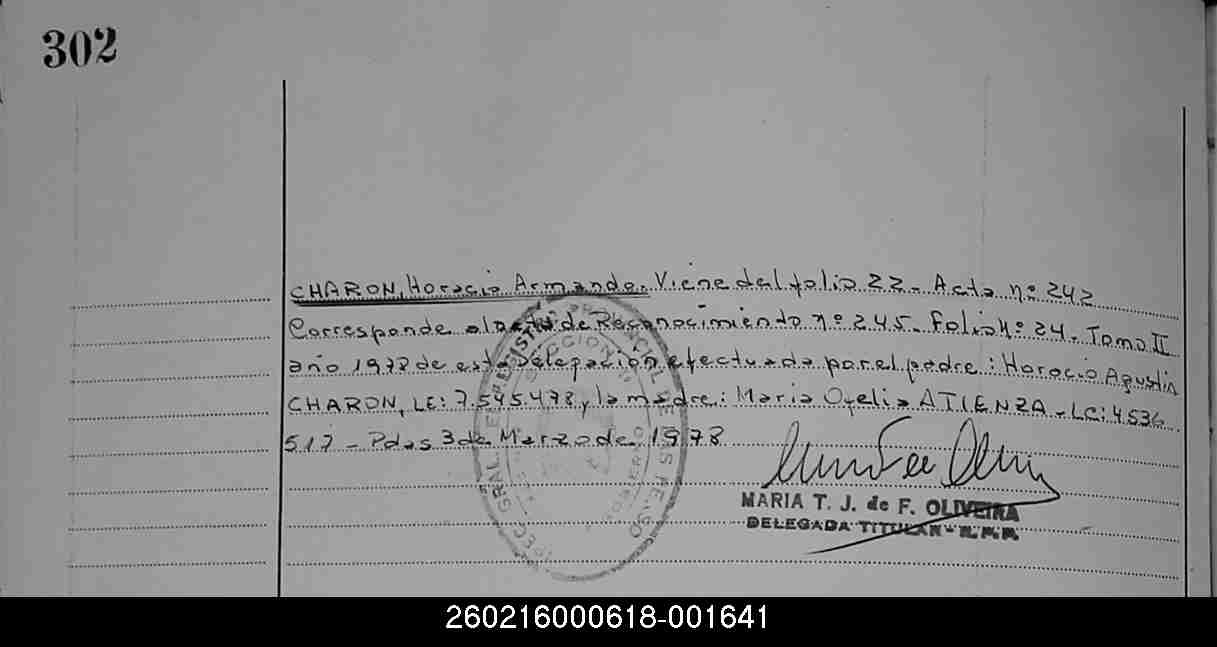 302
CHARON, Horacio Armando. Viene del folio 22 - Acta nº 242
Corresponde al acta de Reconocimiento nº 245 - Folio Nº 24 - Tomo II
año 1978 de esta Delegación efectuada por el padre: Horacio Agustin
CHARON, LE: 7.545.478 y la madre: Maria Ofelia ATIENZA - LC: 4536
517 - Pdas 3 de Marzo de 1978
MARIA T. J. de F. OLIVEIRA
DELEGADA TITULAR
260216000618-001641